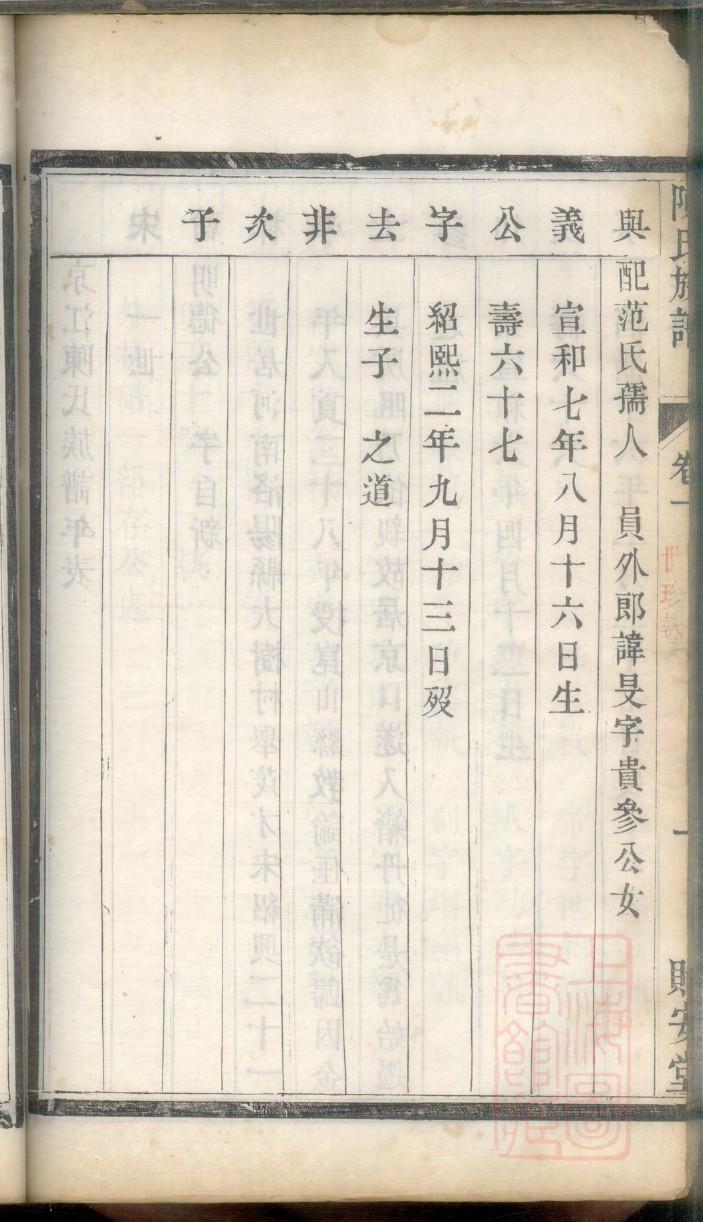 陳氏族譜 卷一 一 貽安堂
與義公字去非次子
配范氏孺人 員外郎諱旻字貴參公女
宣和七年八月十六日生
壽六十七
紹熙二年九月十三日歿
生子 之道
上海圖書館藏